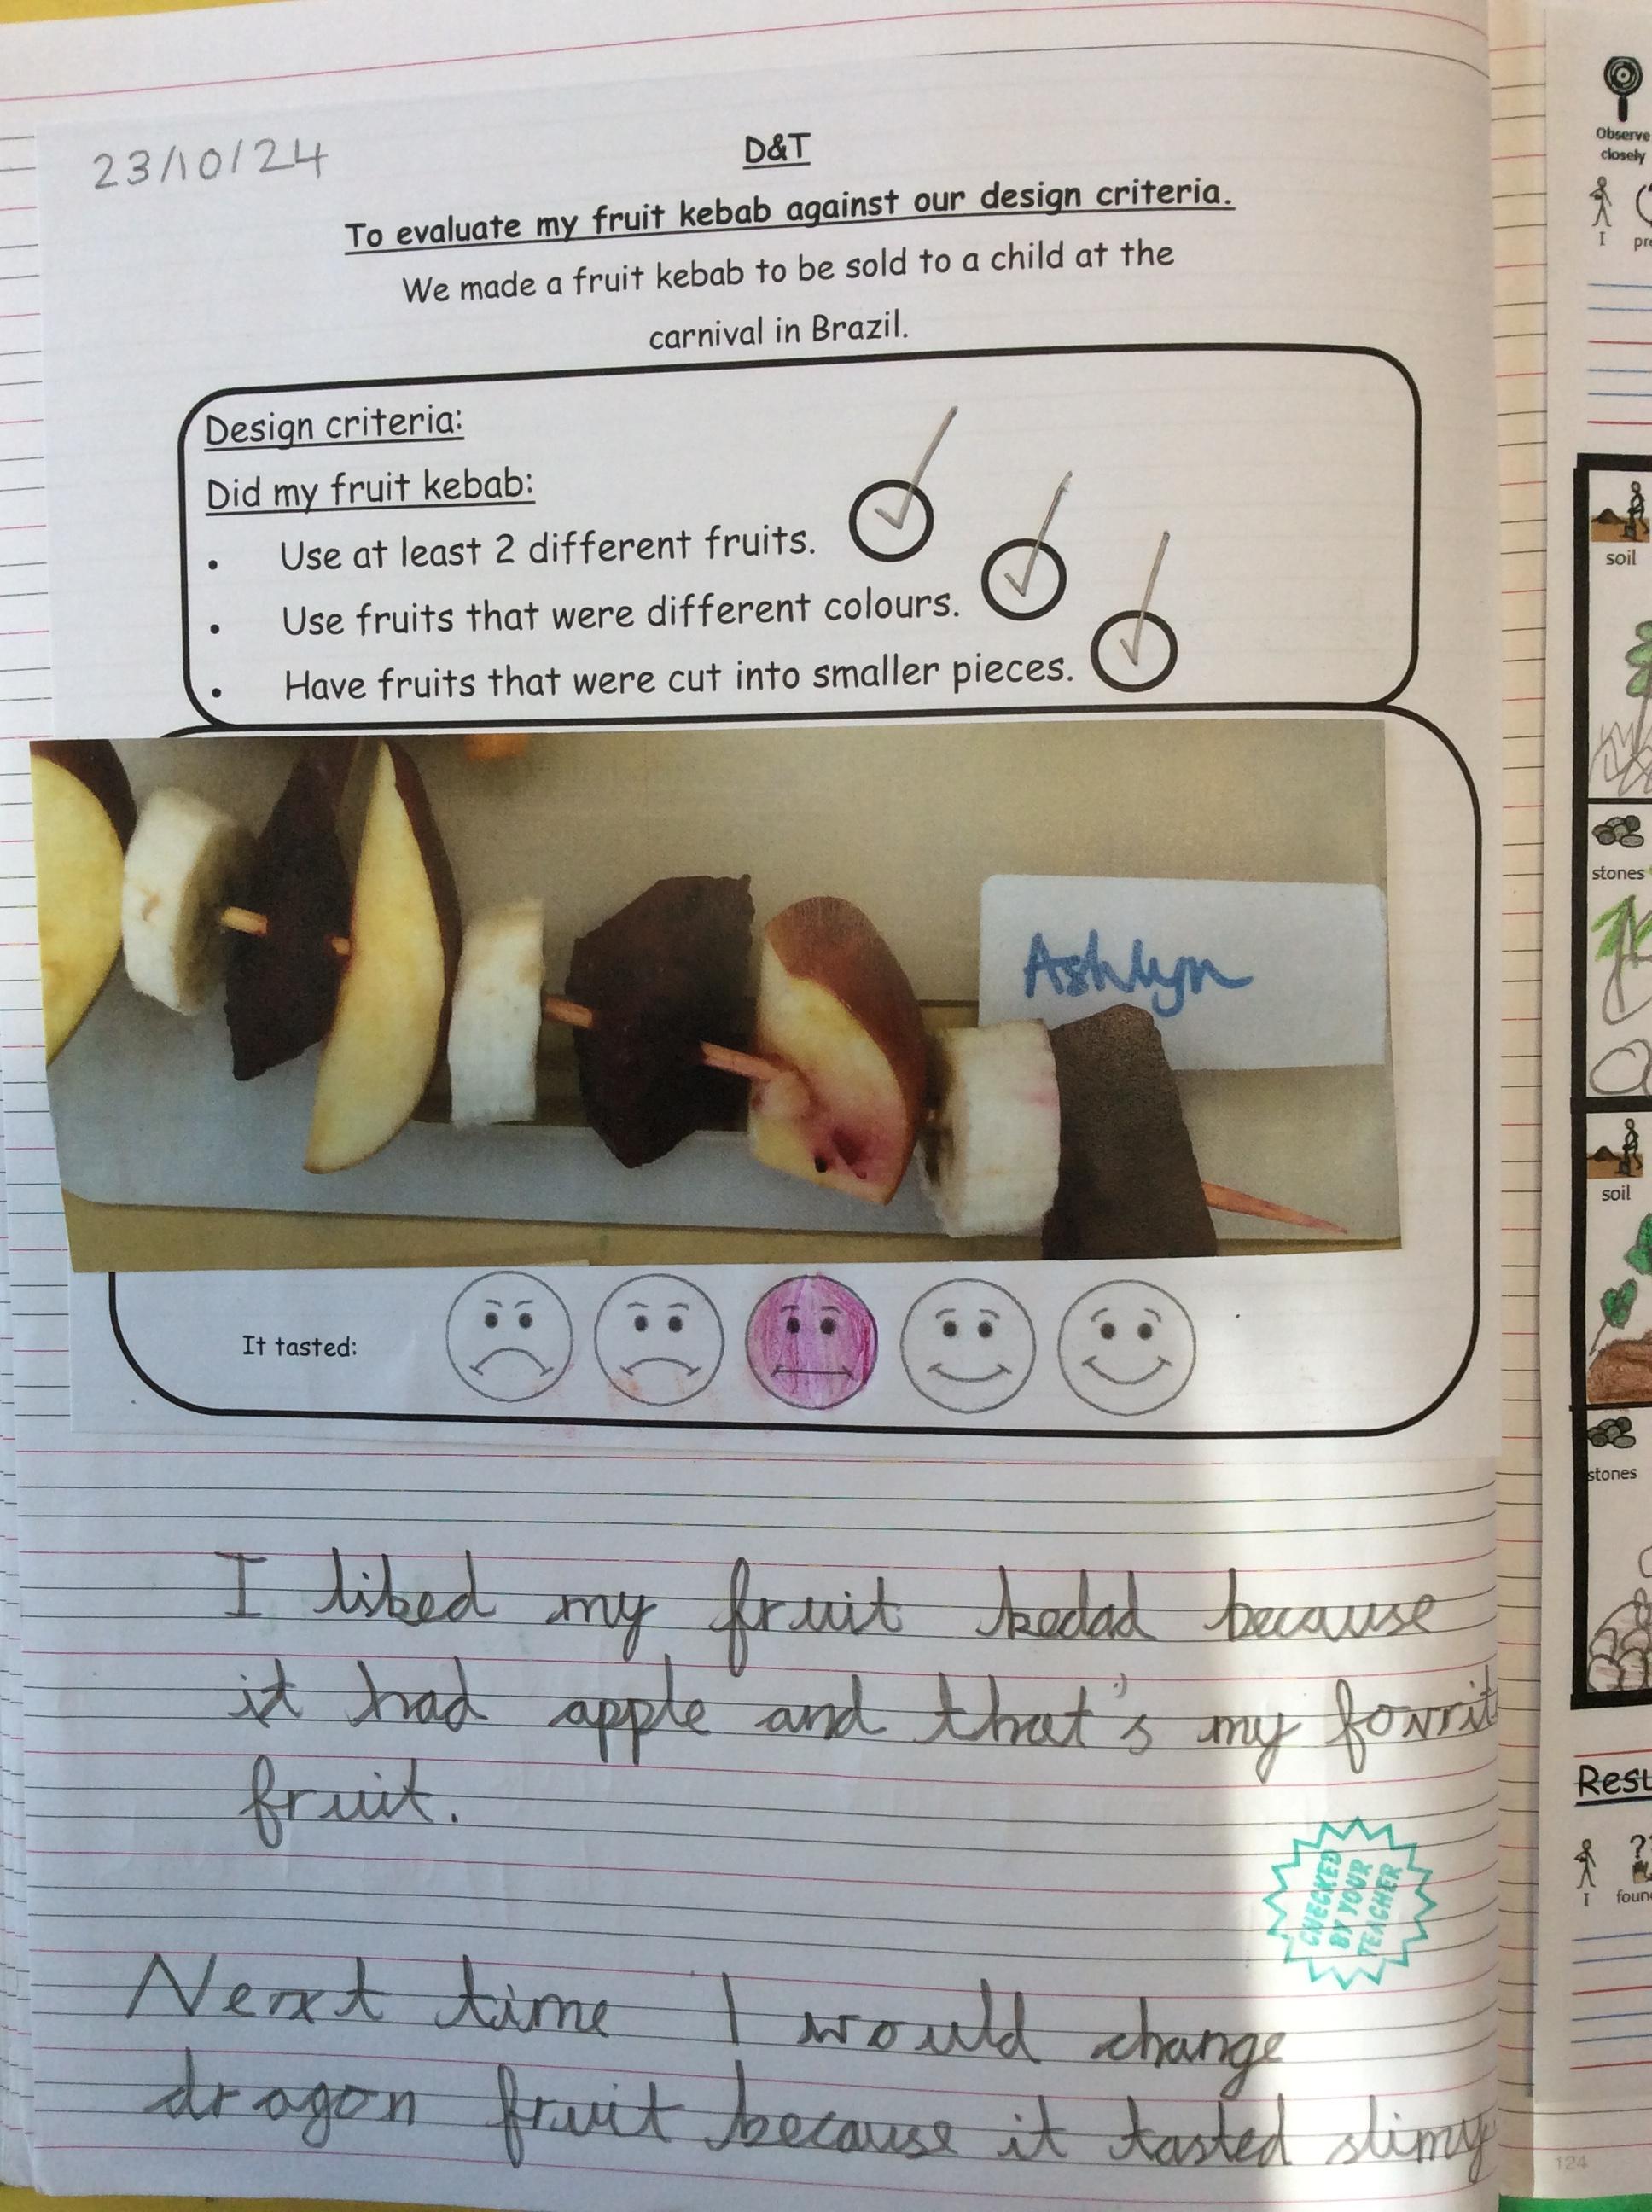 23/10/24
D&T
To evaluate my fruit kebab against our design criteria.
We made a fruit kebab to be sold to a child at the
carnival in Brazil.
Design criteria:
Did my fruit kebab:
• Use at least 2 different fruits.
• Use fruits that were different colours.
• Have fruits that were cut into smaller pieces.
Ashlyn
It tasted:
I liked my fruit kedad because
it had apple and that's my fovrit
fruit.
CHECKED
BY YOUR
TEACHER
Nerxt time I would change
dragon fruit because it tasted slimy
Observe
closely
I
soil
stones
soil
stones
I
124